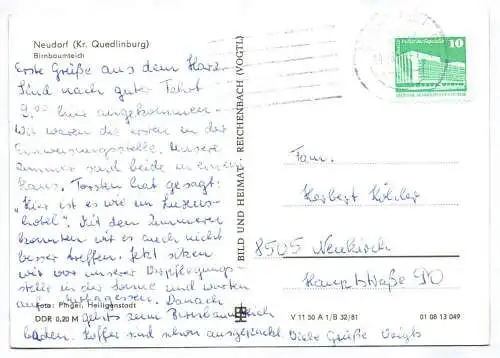 Neudorf (Kr. Quedlinburg)
Birnbaumteich
Erste Grüße aus dem Harz.
Sind nach guter Fahrt
9.00 Uhr angekommen.
Wir waren die ersten in der
Einweisungsstelle. Unsere
Zimmer sind beide in einem
Haus. Torsten hat gesagt:
Hier ist es wie im Luxus-
hotel". Mit den Zimmern
konnten wir es auch nicht
besser treffen. Jetzt sitzen
wir vor unserer Verpflegungs-
stelle in der Sonne und warten
aufs Mittagessen. Danach
Foto: Pingel, Heiligenstadt
geht's zum Birnbaumteich
DDR 0,20 M
baden. Koffer sind schon ausgepackt. Viele Grüße Voigts
BILD UND HEIMAT · REICHENBACH (VOGTL)
10
Fam.
Herbert Köhler
8505 Neukirch
Hauptstraße 90
V 11 50 A 1/B 32/81 01 08 13 049